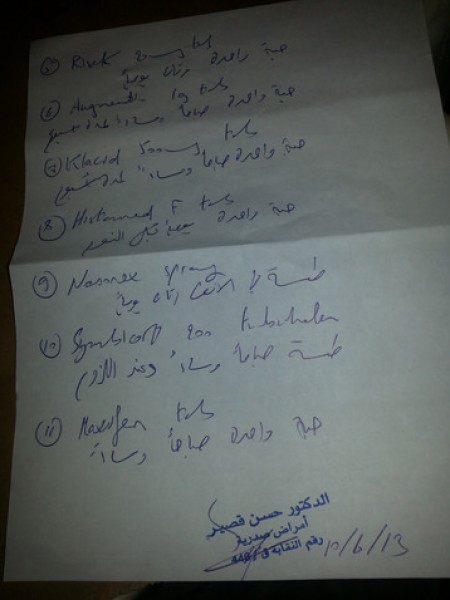 ⑤
حبة واحدة يومياً
⑥ Augmentin 1g tabs
حبة واحدة صباحاً ومساءً لمدة أسبوع
⑦ Klacid 500mg tabs
حبة واحدة صباحاً ومساءً لمدة أسبوع
⑧ Histamed F tabs
حبة واحدة قبل النوم
⑨ Nasonex spray
يومياً
⑩ Symbicort 200 turbuhaler
صباحاً ومساءً وعند اللزوم
⑪ tabs
حبة واحدة صباحاً ومساءً
الدكتور حسن قصير
أمراض صدرية
رقم النقابة
10/6/13